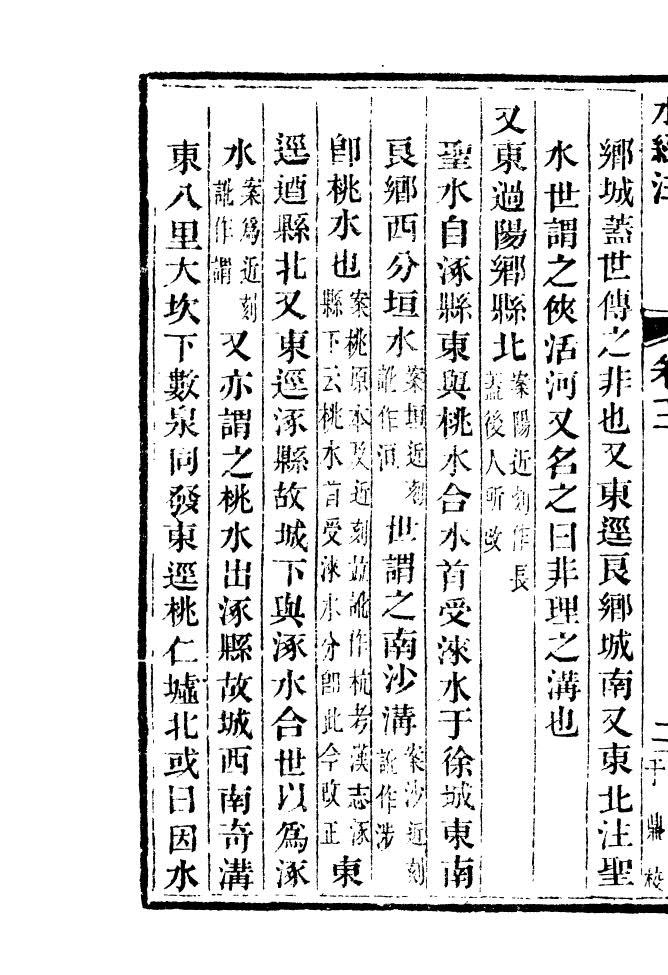 水經注 卷十二 二 于鼎校
鄉城蓋世傳之非也又東逕良鄉城南又東北注聖
水世謂之俠活河又名之曰非理之溝也
又東過陽鄉縣北案陽近刻作長蓋後人所改
聖水自涿縣東與桃水合水首受淶水于徐城東南
良鄉西分垣水案垣近刻訛作洹世謂之南沙溝案沙近刻訛作涉
卽桃水也案桃原本及近刻竝訛作杭考漢志涿縣下云桃水首受淶水分卽此今改正東
逕遒縣北又東逕涿縣故城下與涿水合世以爲涿
水案爲近刻訛作謂又亦謂之桃水出涿縣故城西南奇溝
東八里大坎下數泉同發東逕桃仁墟北或曰因水